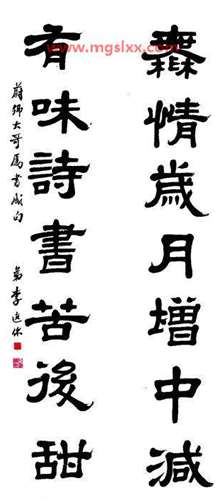 www.mgslxx.com
無情歲月增中減
有味詩書苦後甜
大哥屬書成句
弟李